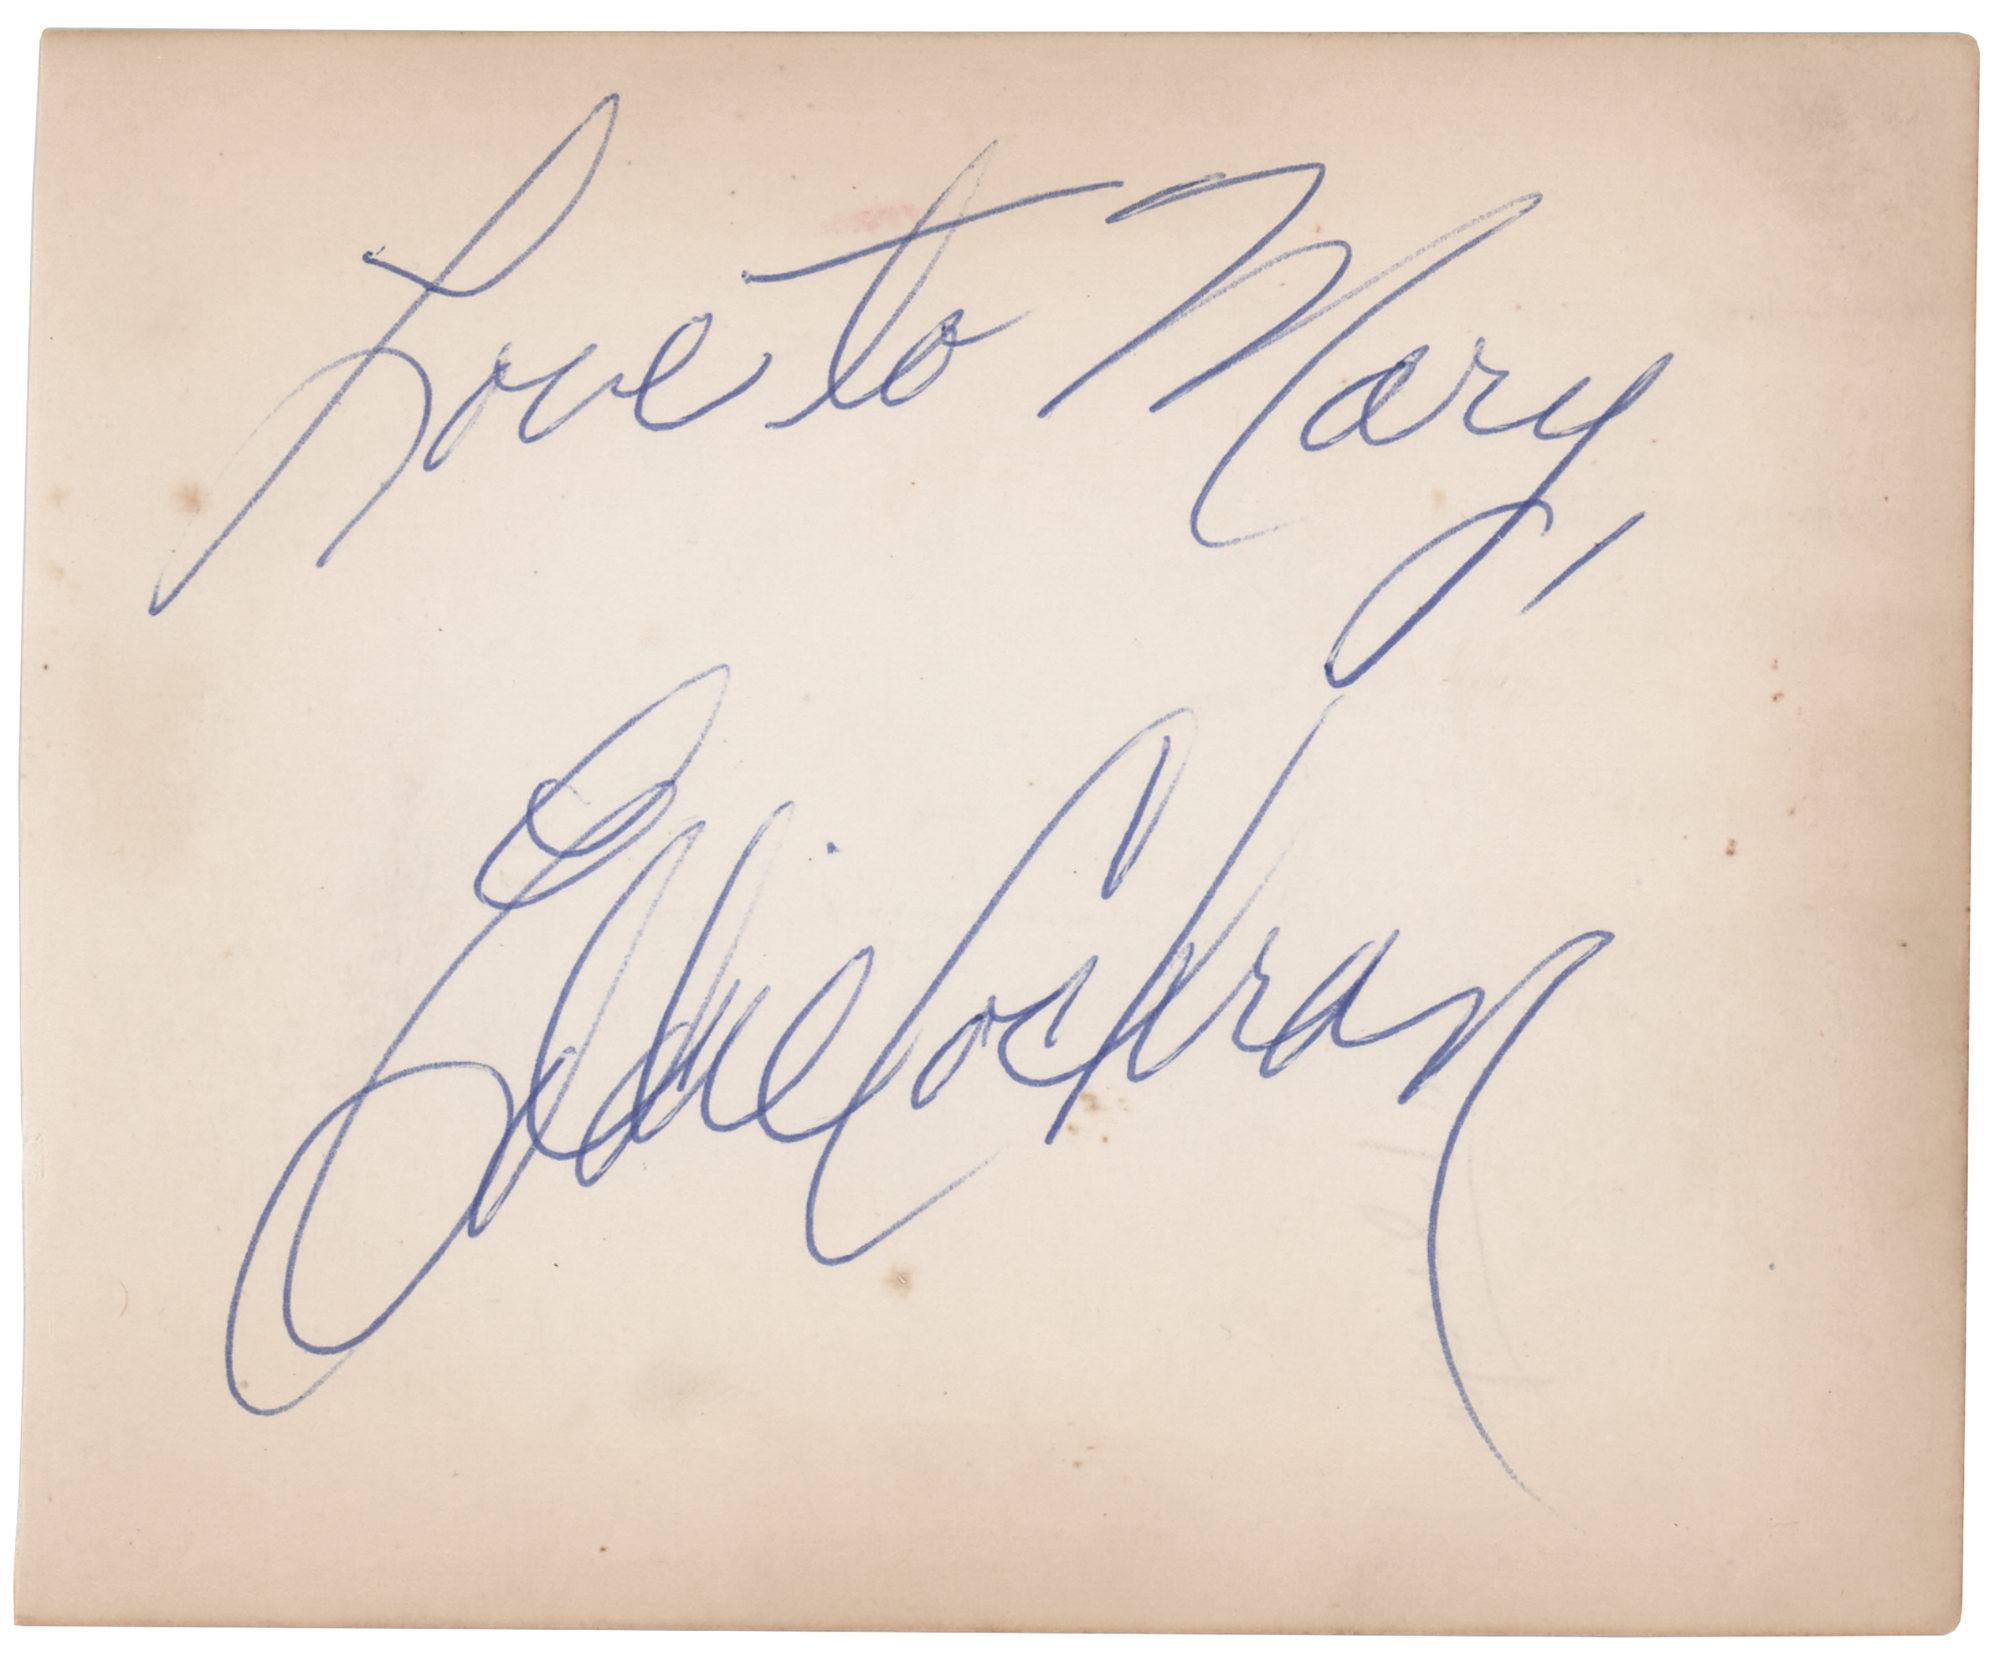 Love to Mary,
Eddie Cochran